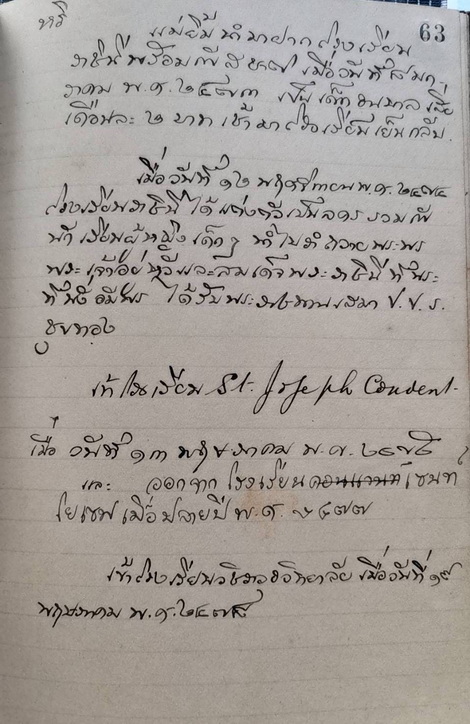 63
แม่ยิ้มนำมาฝากโรงเรียน
ราชินีพร้อมกับ เมื่อวันที่
พ.ศ. ๒๔๗๓ เป็นเด็ก
เดือนละ ๒ บาท เช้ามาโรงเรียนเย็นกลับ.
เมื่อวันที่ ๑๖ พฤศจิกายน พ.ศ. ๒๔๗๔
โรงเรียนราชินี ได้แต่งตัวเป็นละครรวมกับ
นักเรียนผู้หญิงเล็ก ๆ ไป ถวายพระพร
พระเจ้าอยู่หัวและสมเด็จพระราชินี ที่พระ
ที่นั่งอัมพร ได้รับพระราชทานเสมา ป.ป.ร.
ชุบทอง
เข้าโรงเรียน St. Joseph Convent.
เมื่อ วันที่ ๑๓ พฤษภาคม พ.ศ.
และ ออกจาก โรงเรียนคอนแวนท์เซนท์
โยเซฟ เมื่อปลายปี พ.ศ. ๒๔๗๗
เข้าโรงเรียนวชิราวุธวิทยาลัย เมื่อวันที่
พฤษภาคม พ.ศ. ๒๔๗๘